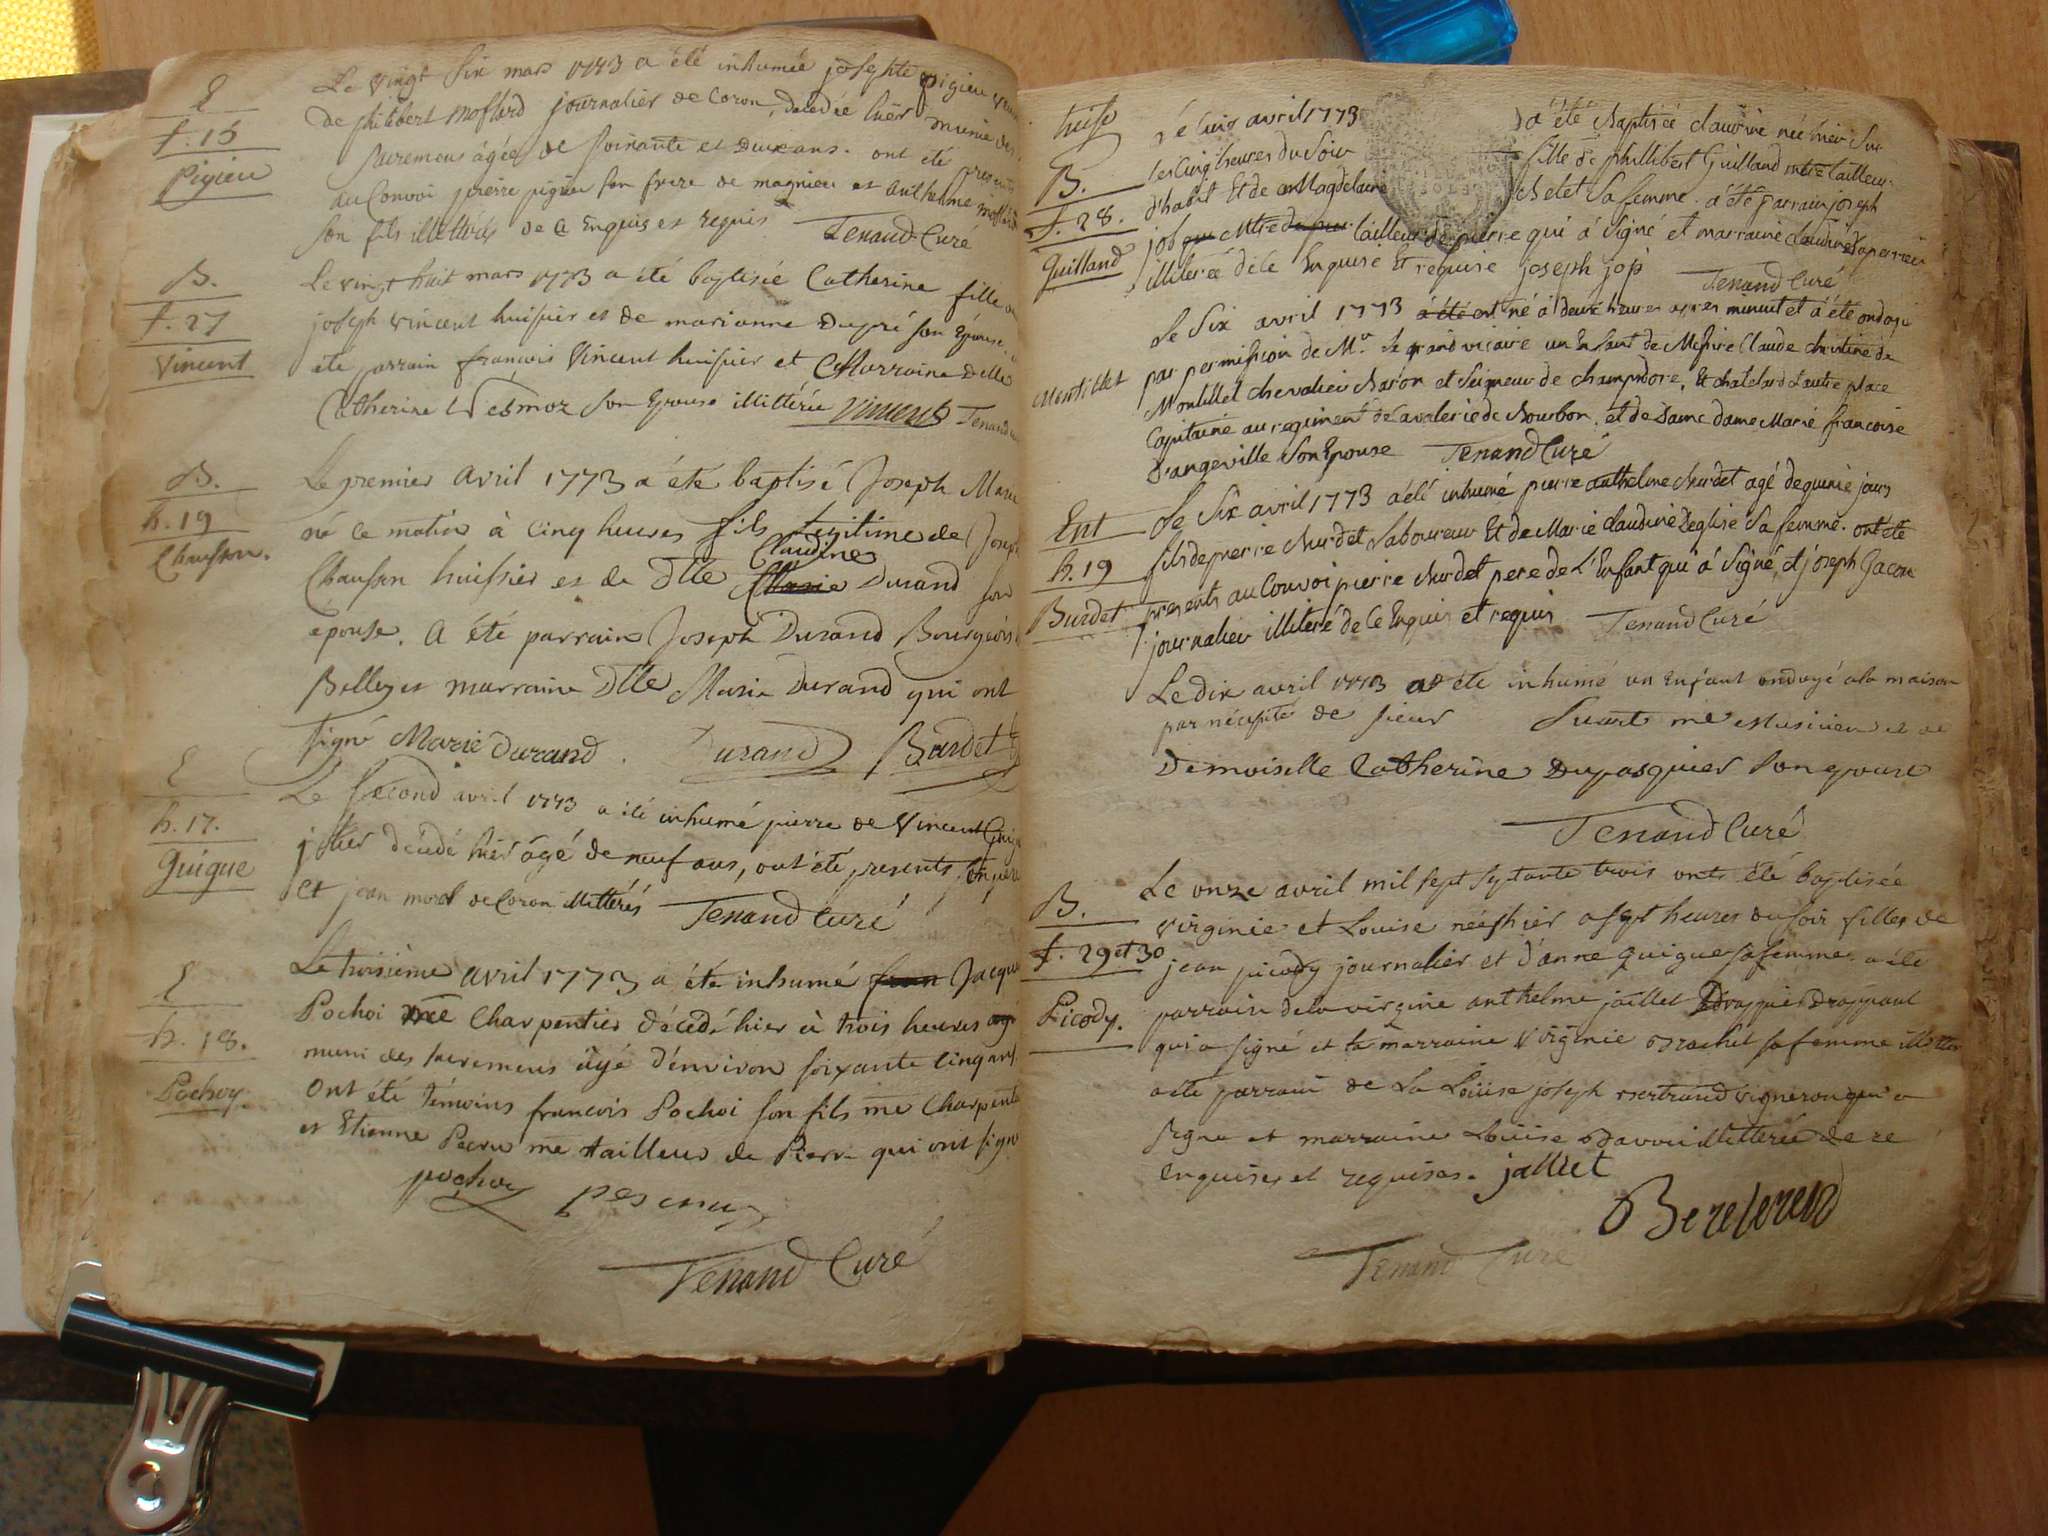 E
f. 15
Pigieu
Le vingt six mars 1773 a été inhumée josephte pigieu
de philibert moflard journalier de Coron, decedée hier munie des
sacremens âgée de soixante et deux ans. ont été presents
au Convoi pierre pigieu son frere de magnieu et anthelme
son fils illitérés de ce Enquis et requis Tenand Curé
B.
f. 27
Vincent
Le vingt huit mars 1773 a été baptisée Catherine fille de
joseph vincent huissier et de marianne Dupré son Epouse
ete parrain françois Vincent huissier et Marraine Delle
Catherine son Epouse illittérée Vincent Tenand
B.
h. 19
Chausson.
Le premier avril 1773 a été baptisé Joseph Marie
né ce matin à cinq heures fils Legitime de Joseph
Claudine
Chausson huissier et de Dlle Marie Durand son
épouse. a été parrain Joseph Durand Bourgeois
Belley et marraine Dlle Marie Durand qui ont
signé Marie durand. Durand Burdet
E
h. 17.
Guigue
Le second avril 1773 a été inhumé pierre de Vincent
décédé hier âgé de neuf ans, ont été presents, son père
et jean morel de Coron illittérés Tenand Curé
E
h. 18.
Pochoy.
Le troisième avril 1773 a été inhumé Jacque
Pochoi me Charpentier décédé hier à trois heures
muni des sacremens âgé d'environ soixante cinq ans
Ont été témoins françois Pochoi son fils me Charpentier
et Etienne me tailleur de Pierre qui ont signé
pochoy
Tenand Curé
B.
f. 28.
Guilland
Le cinq avril 1773 a été Baptisée claudine née hier sur
les cinq heures du soir fille de phillibert Guilland mtre tailleur
d'habit Et de Magdelaine chelet sa femme. a été parrain joseph
job mtre tailleur de pierre qui à signé et marraine claudine
illiterée de ce Enquise Et requise joseph jop Tenand Curé
Montillet
Le six avril 1773 à été ont né à deux heures apres minuit et à été ondoyé
par permission de Mr le grand vicaire un Enfant de Messire Claude christine de
Montillet chevalier Baron et seigneur de champdore, Et chatelard et autre place
Capitaine au regiment de Cavalerie de Bourbon, et de Dame dame Marie francoise
D'angeville son Epouse Tenand Curé
Ent
h. 19
Burdet
Le six avril 1773 à été inhumé pierre anthelme Burdet agé de quinze jours
fils de pierre Burdet Laboureur Et de Marie claudine Deglise sa femme. ont été
presents au Convoi pierre Burdet pere de L'Enfant qui à signé, et joseph Gacon
journalier illiteré de ce Enquis et requis Tenand Curé
Le dix avril 1773 a été inhumé un Enfant ondoyé a la maison
par nécessité de sieur Suart me Musicien et de
Demoiselle Catherine Dupasquier son epouse
Tenand Curé
B.
f. 29 et 30
Picody.
Le onze avril mil sept septante trois onts été baptisée
virginie et Louise nées hier a sept heures du soir filles de
jean picody journalier et d'anne guigue sa femme. a été
parrain de la virgine anthelme jaillet Drappant
qui a signé et la marraine Virginie Brachet sa femme
a été parrain de La Loüise joseph Bertrand vigneron qui a
signé et marraine Loüise illitterée de ce
enquises et requises. jalliet
Tenand Curé